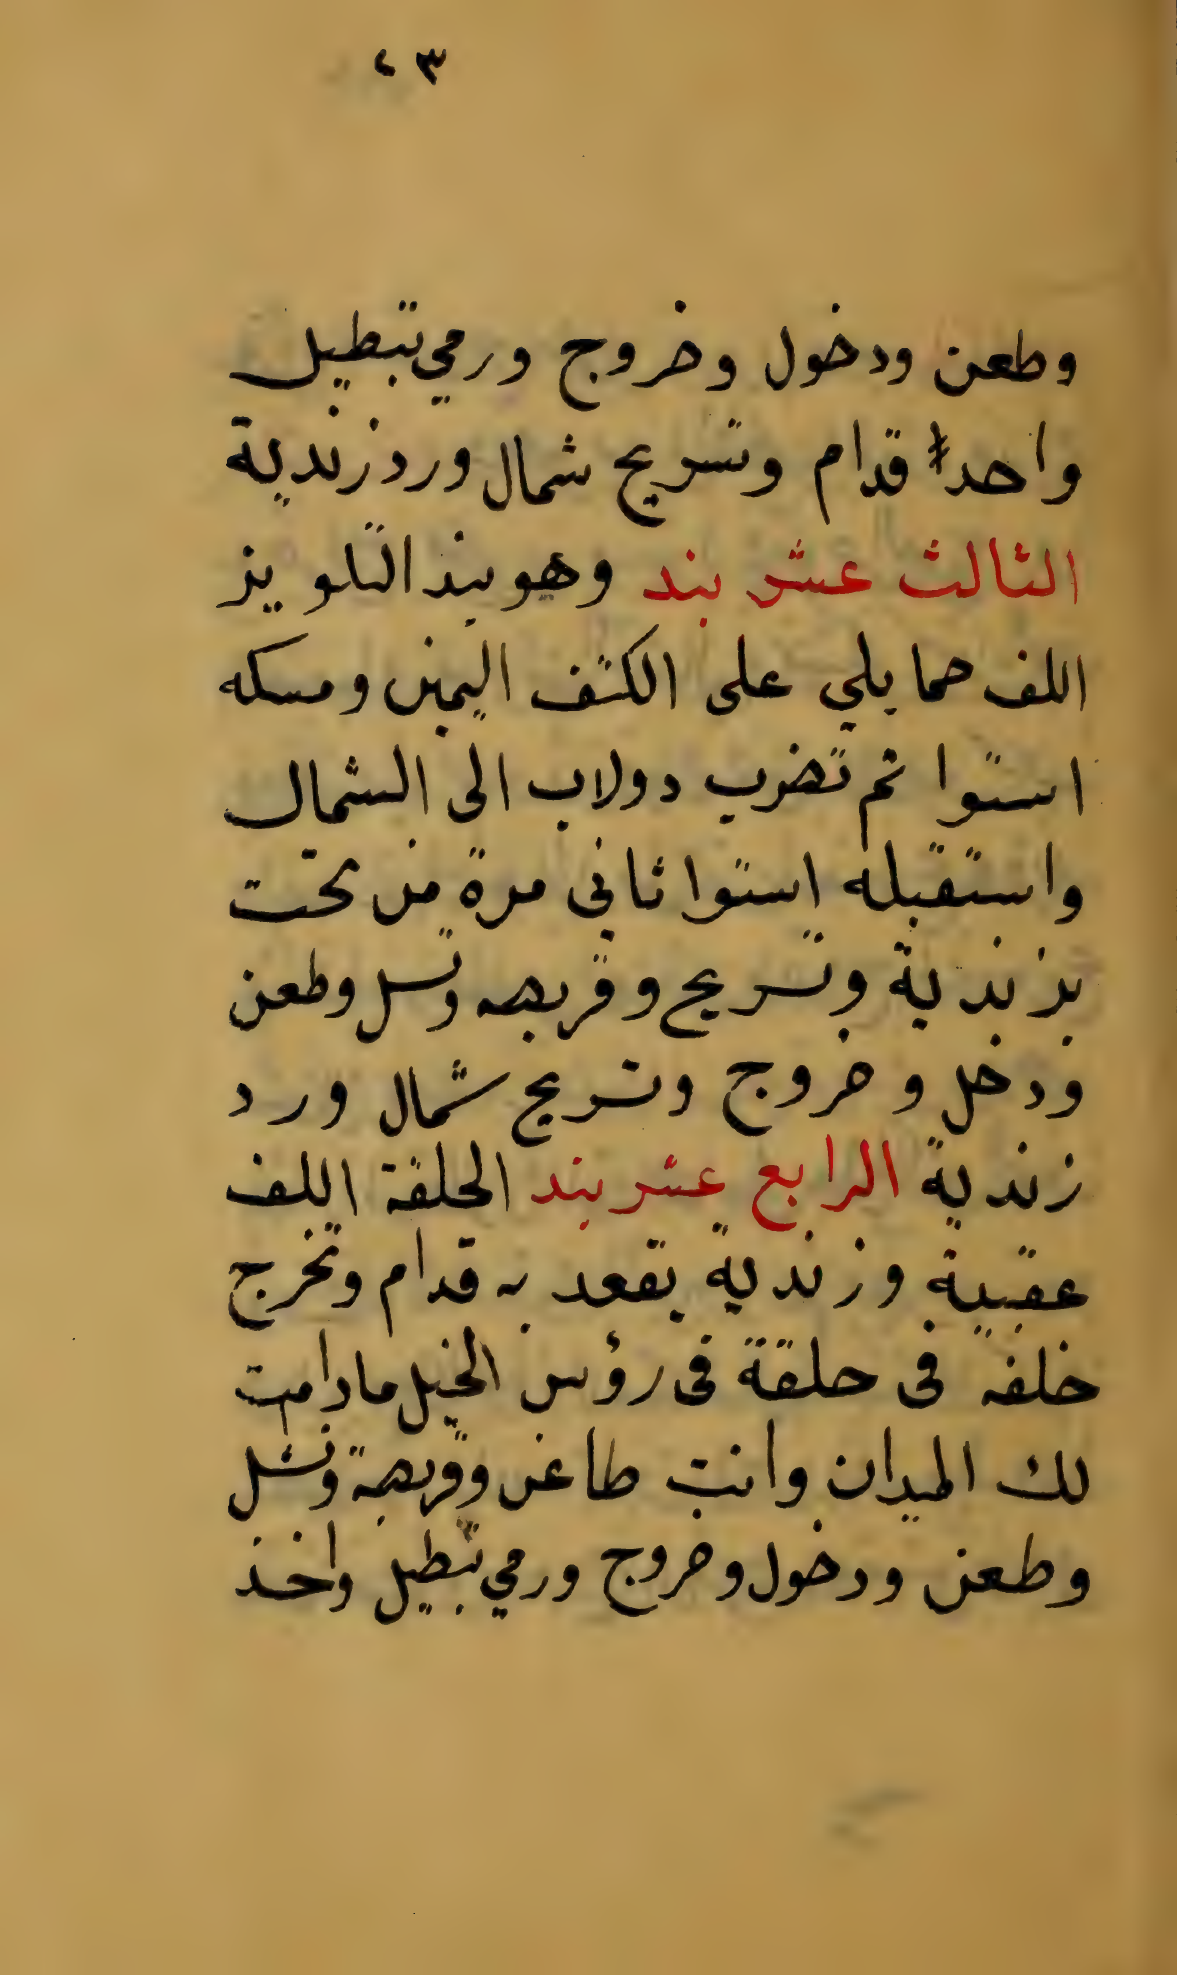 ٤٣
وطعن ودخول وخروج ورمي تبطيل
واحدا قدام وتسريح شمال ورد زندية
الثالث عشر بند وهو بند التلويز
اللف حمايلي على الكتف اليمين ومسكه
استوا ثم تضرب دولاب الى الشمال
واستقبله استوا ثاني مرة من تحت
بزندية وتسريح وقربصه وتسل وطعن
ودخل وخروج وتسريح شمال ورد
زندية الرابع عشر بند الحلقة اللف
عقبية وزندية يقعد به قدام وتخرج
خلفه في حلقة في رؤس الخيل مادامت
لك الميدان وانت طاعن وقربصة وتسل
وطعن ودخول وخروج ورمي تبطيل واخذ